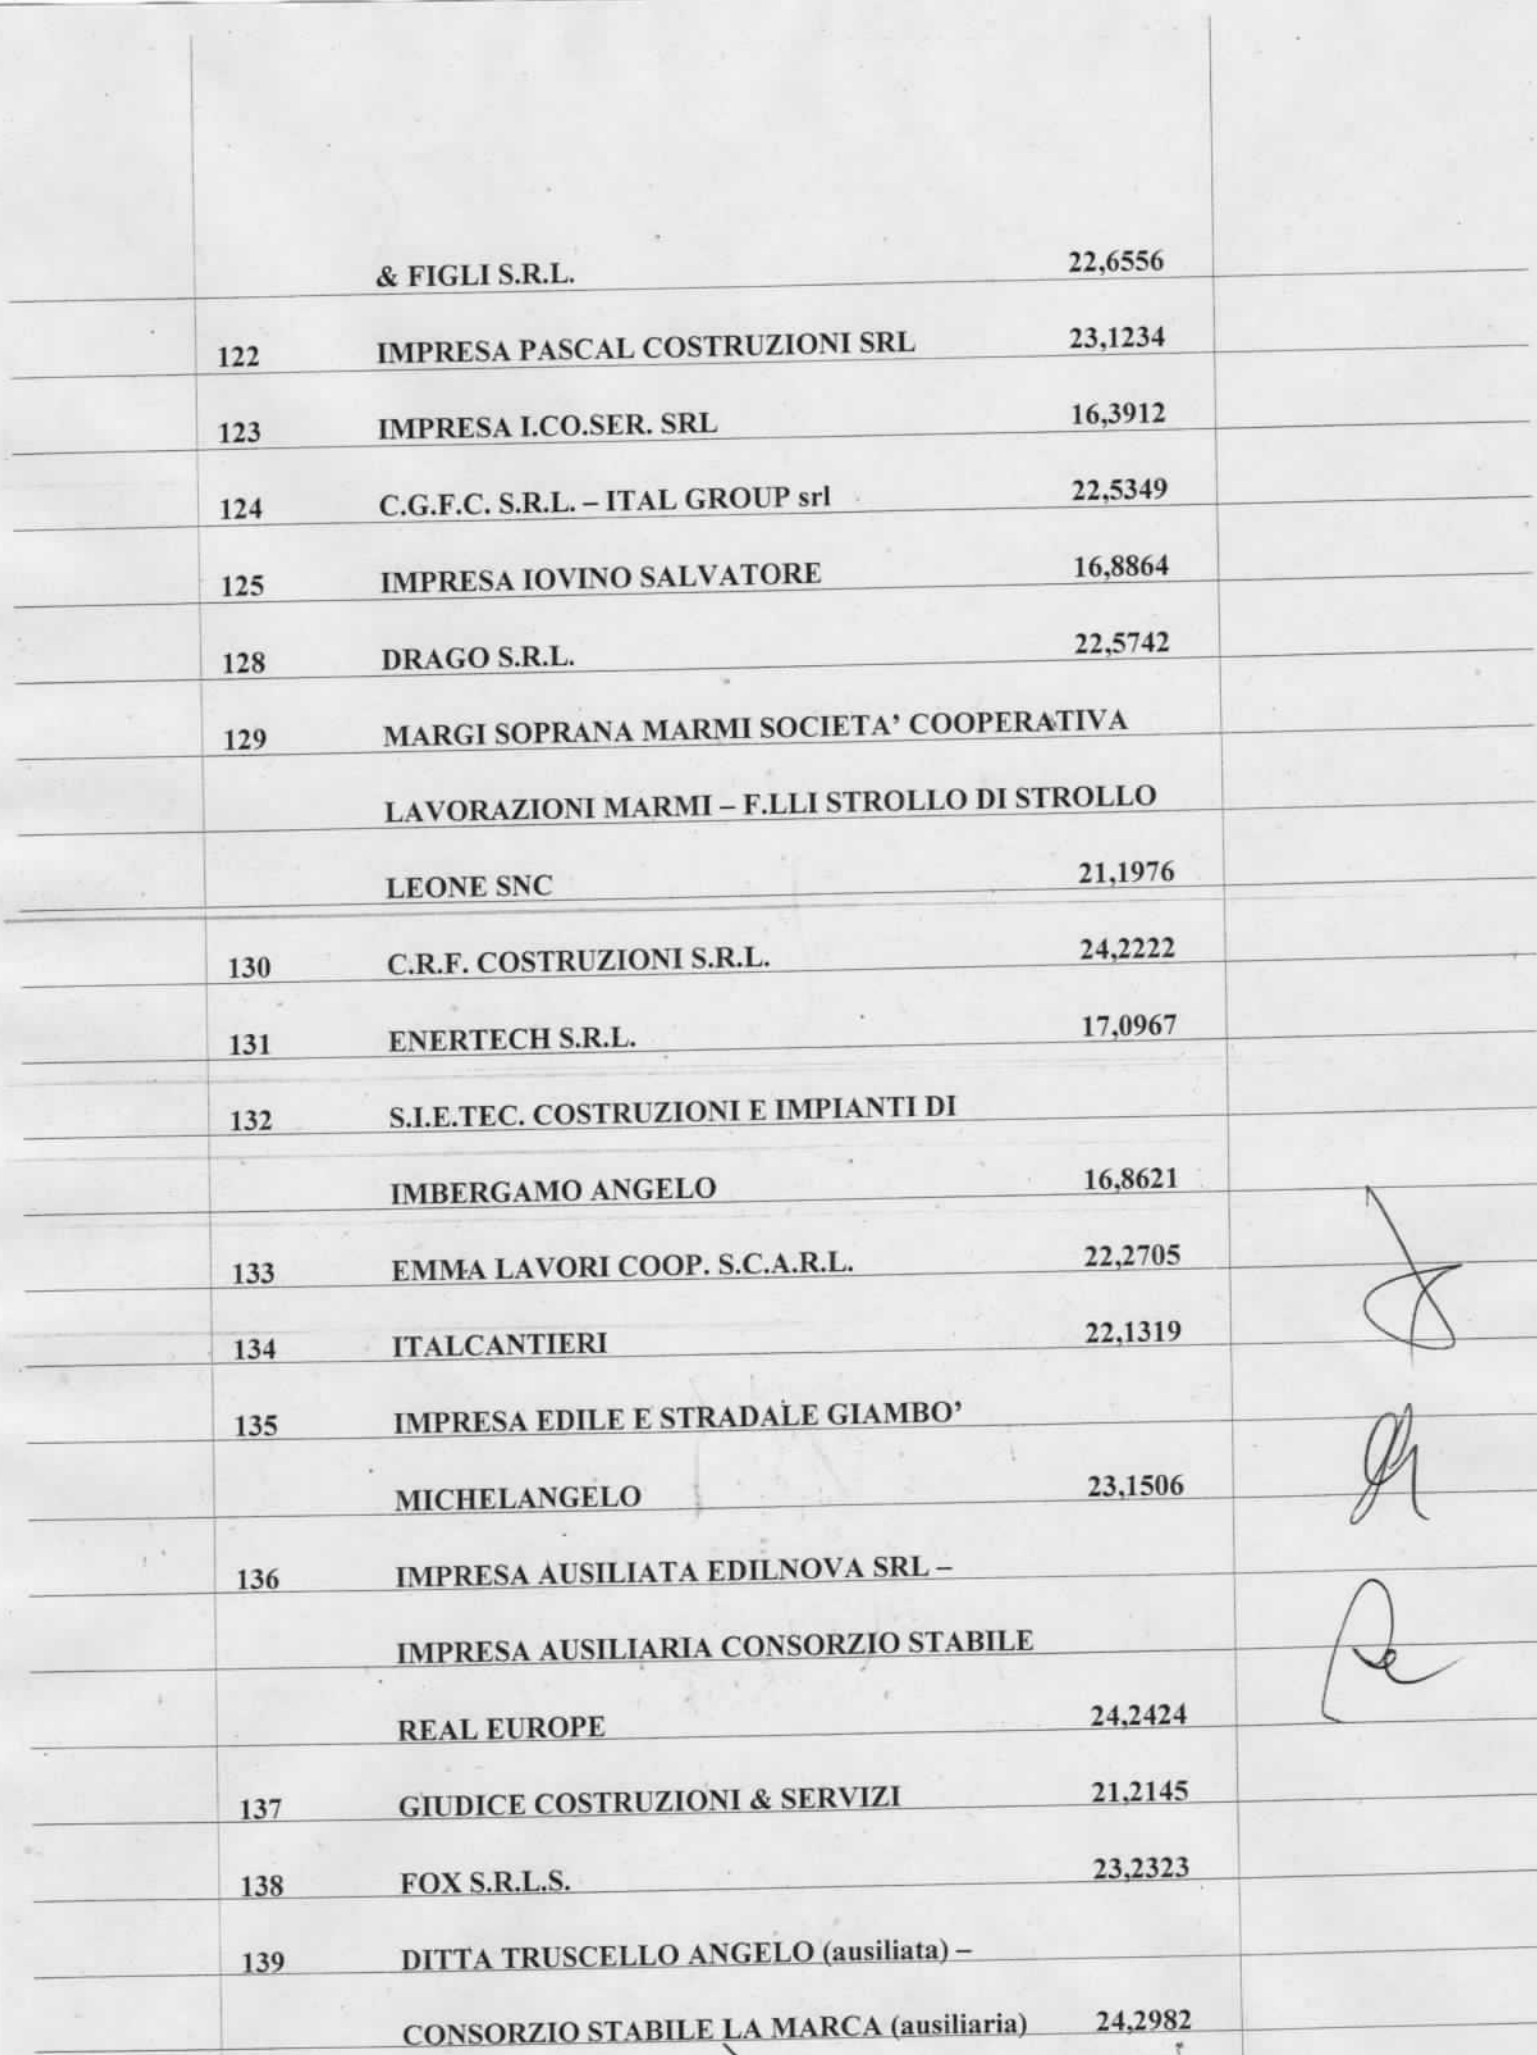 & FIGLI S.R.L. 22,6556
122 IMPRESA PASCAL COSTRUZIONI SRL 23,1234
123 IMPRESA I.CO.SER. SRL 16,3912
124 C.G.F.C. S.R.L. – ITAL GROUP srl 22,5349
125 IMPRESA IOVINO SALVATORE 16,8864
128 DRAGO S.R.L. 22,5742
129 MARGI SOPRANA MARMI SOCIETA’ COOPERATIVA
LAVORAZIONI MARMI – F.LLI STROLLO DI STROLLO
LEONE SNC 21,1976
130 C.R.F. COSTRUZIONI S.R.L. 24,2222
131 ENERTECH S.R.L. 17,0967
132 S.I.E.TEC. COSTRUZIONI E IMPIANTI DI
IMBERGAMO ANGELO 16,8621
133 EMMA LAVORI COOP. S.C.A.R.L. 22,2705
134 ITALCANTIERI 22,1319
135 IMPRESA EDILE E STRADALE GIAMBO’
MICHELANGELO 23,1506
136 IMPRESA AUSILIATA EDILNOVA SRL –
IMPRESA AUSILIARIA CONSORZIO STABILE
REAL EUROPE 24,2424
137 GIUDICE COSTRUZIONI & SERVIZI 21,2145
138 FOX S.R.L.S. 23,2323
139 DITTA TRUSCELLO ANGELO (ausiliata) –
CONSORZIO STABILE LA MARCA (ausiliaria) 24,2982